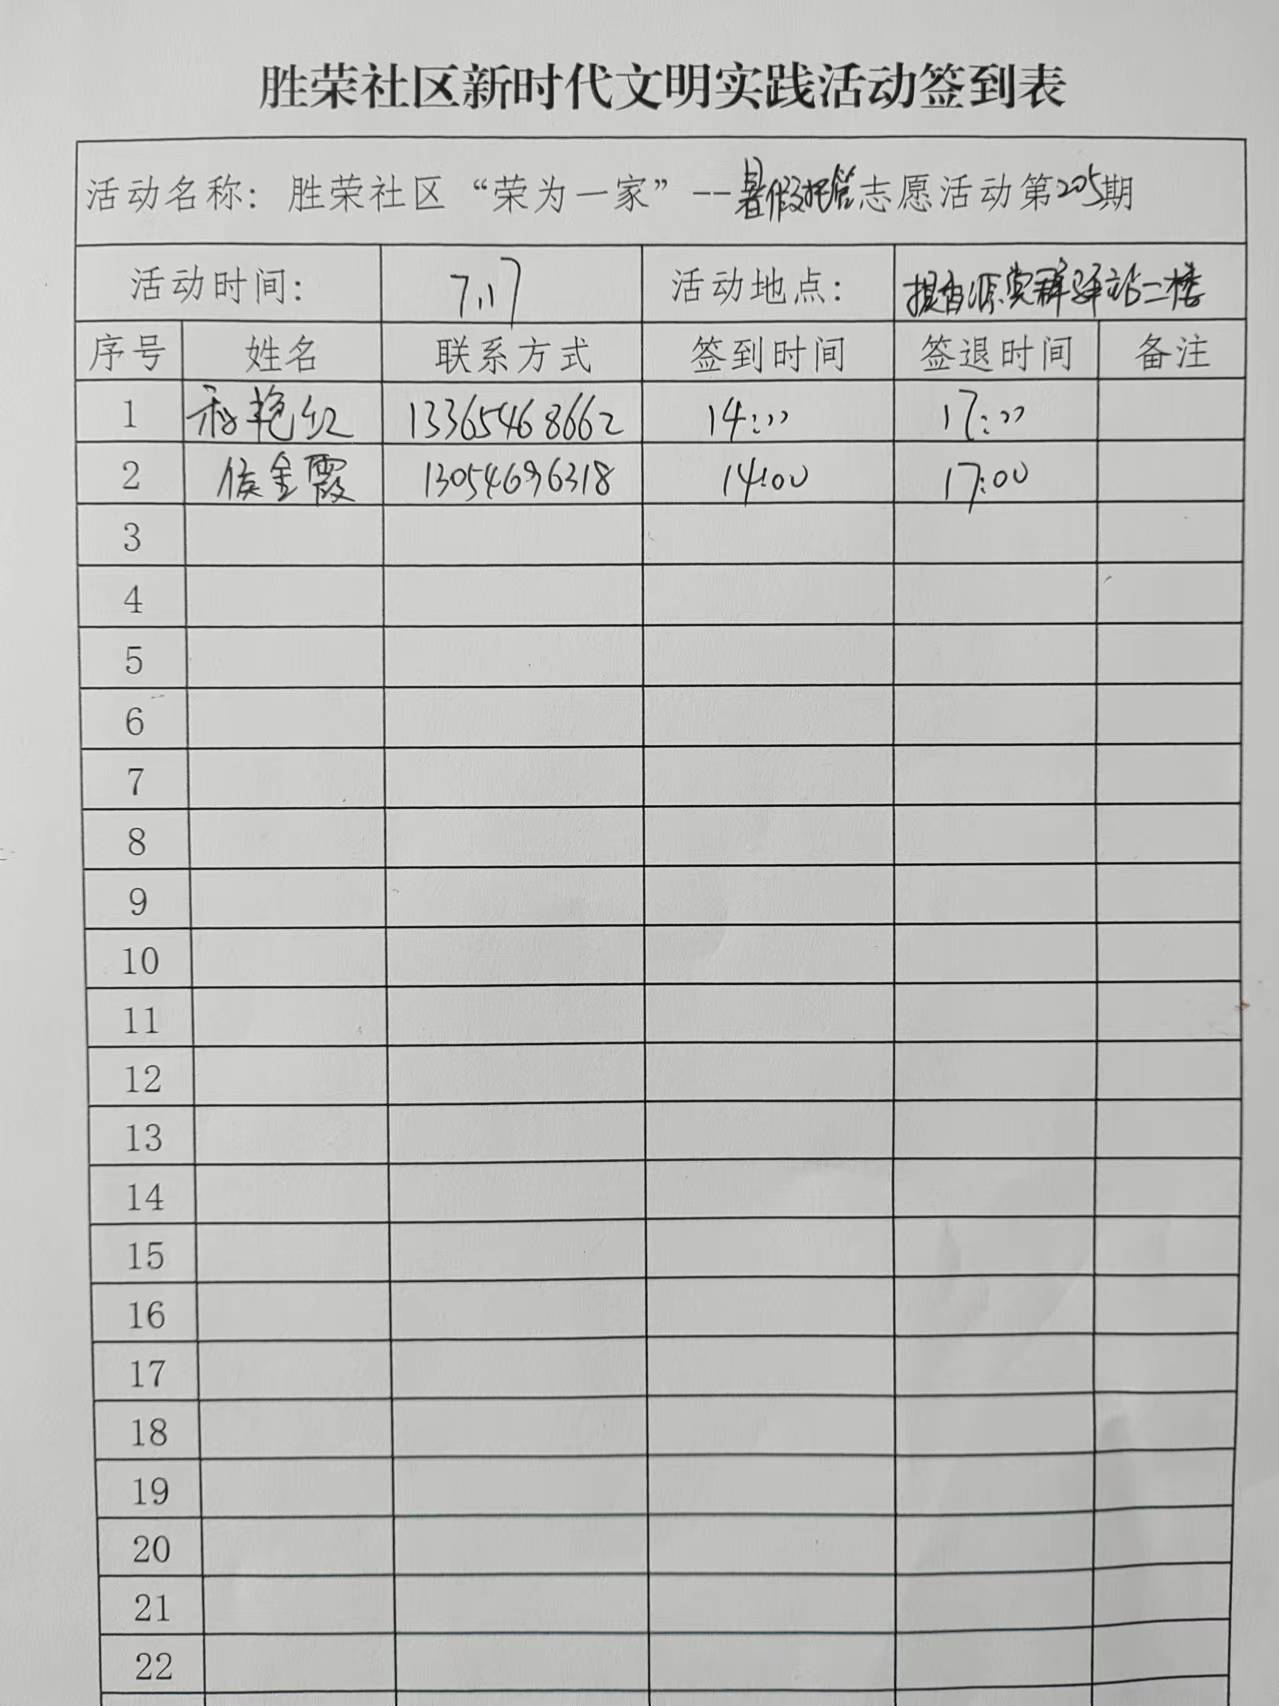 胜荣社区新时代文明实践活动签到表
活动名称：胜荣社区“荣为一家”--暑假托管志愿活动第205期
活动时间： 7.17 活动地点： 源党群驿站二楼
序号 姓名 联系方式 签到时间 签退时间 备注
1 艳红 13365468662 14:00 17:00
2 侯金霞 13054696318 14:00 17:00
3
4
5
6
7
8
9
10
11
12
13
14
15
16
17
18
19
20
21
22